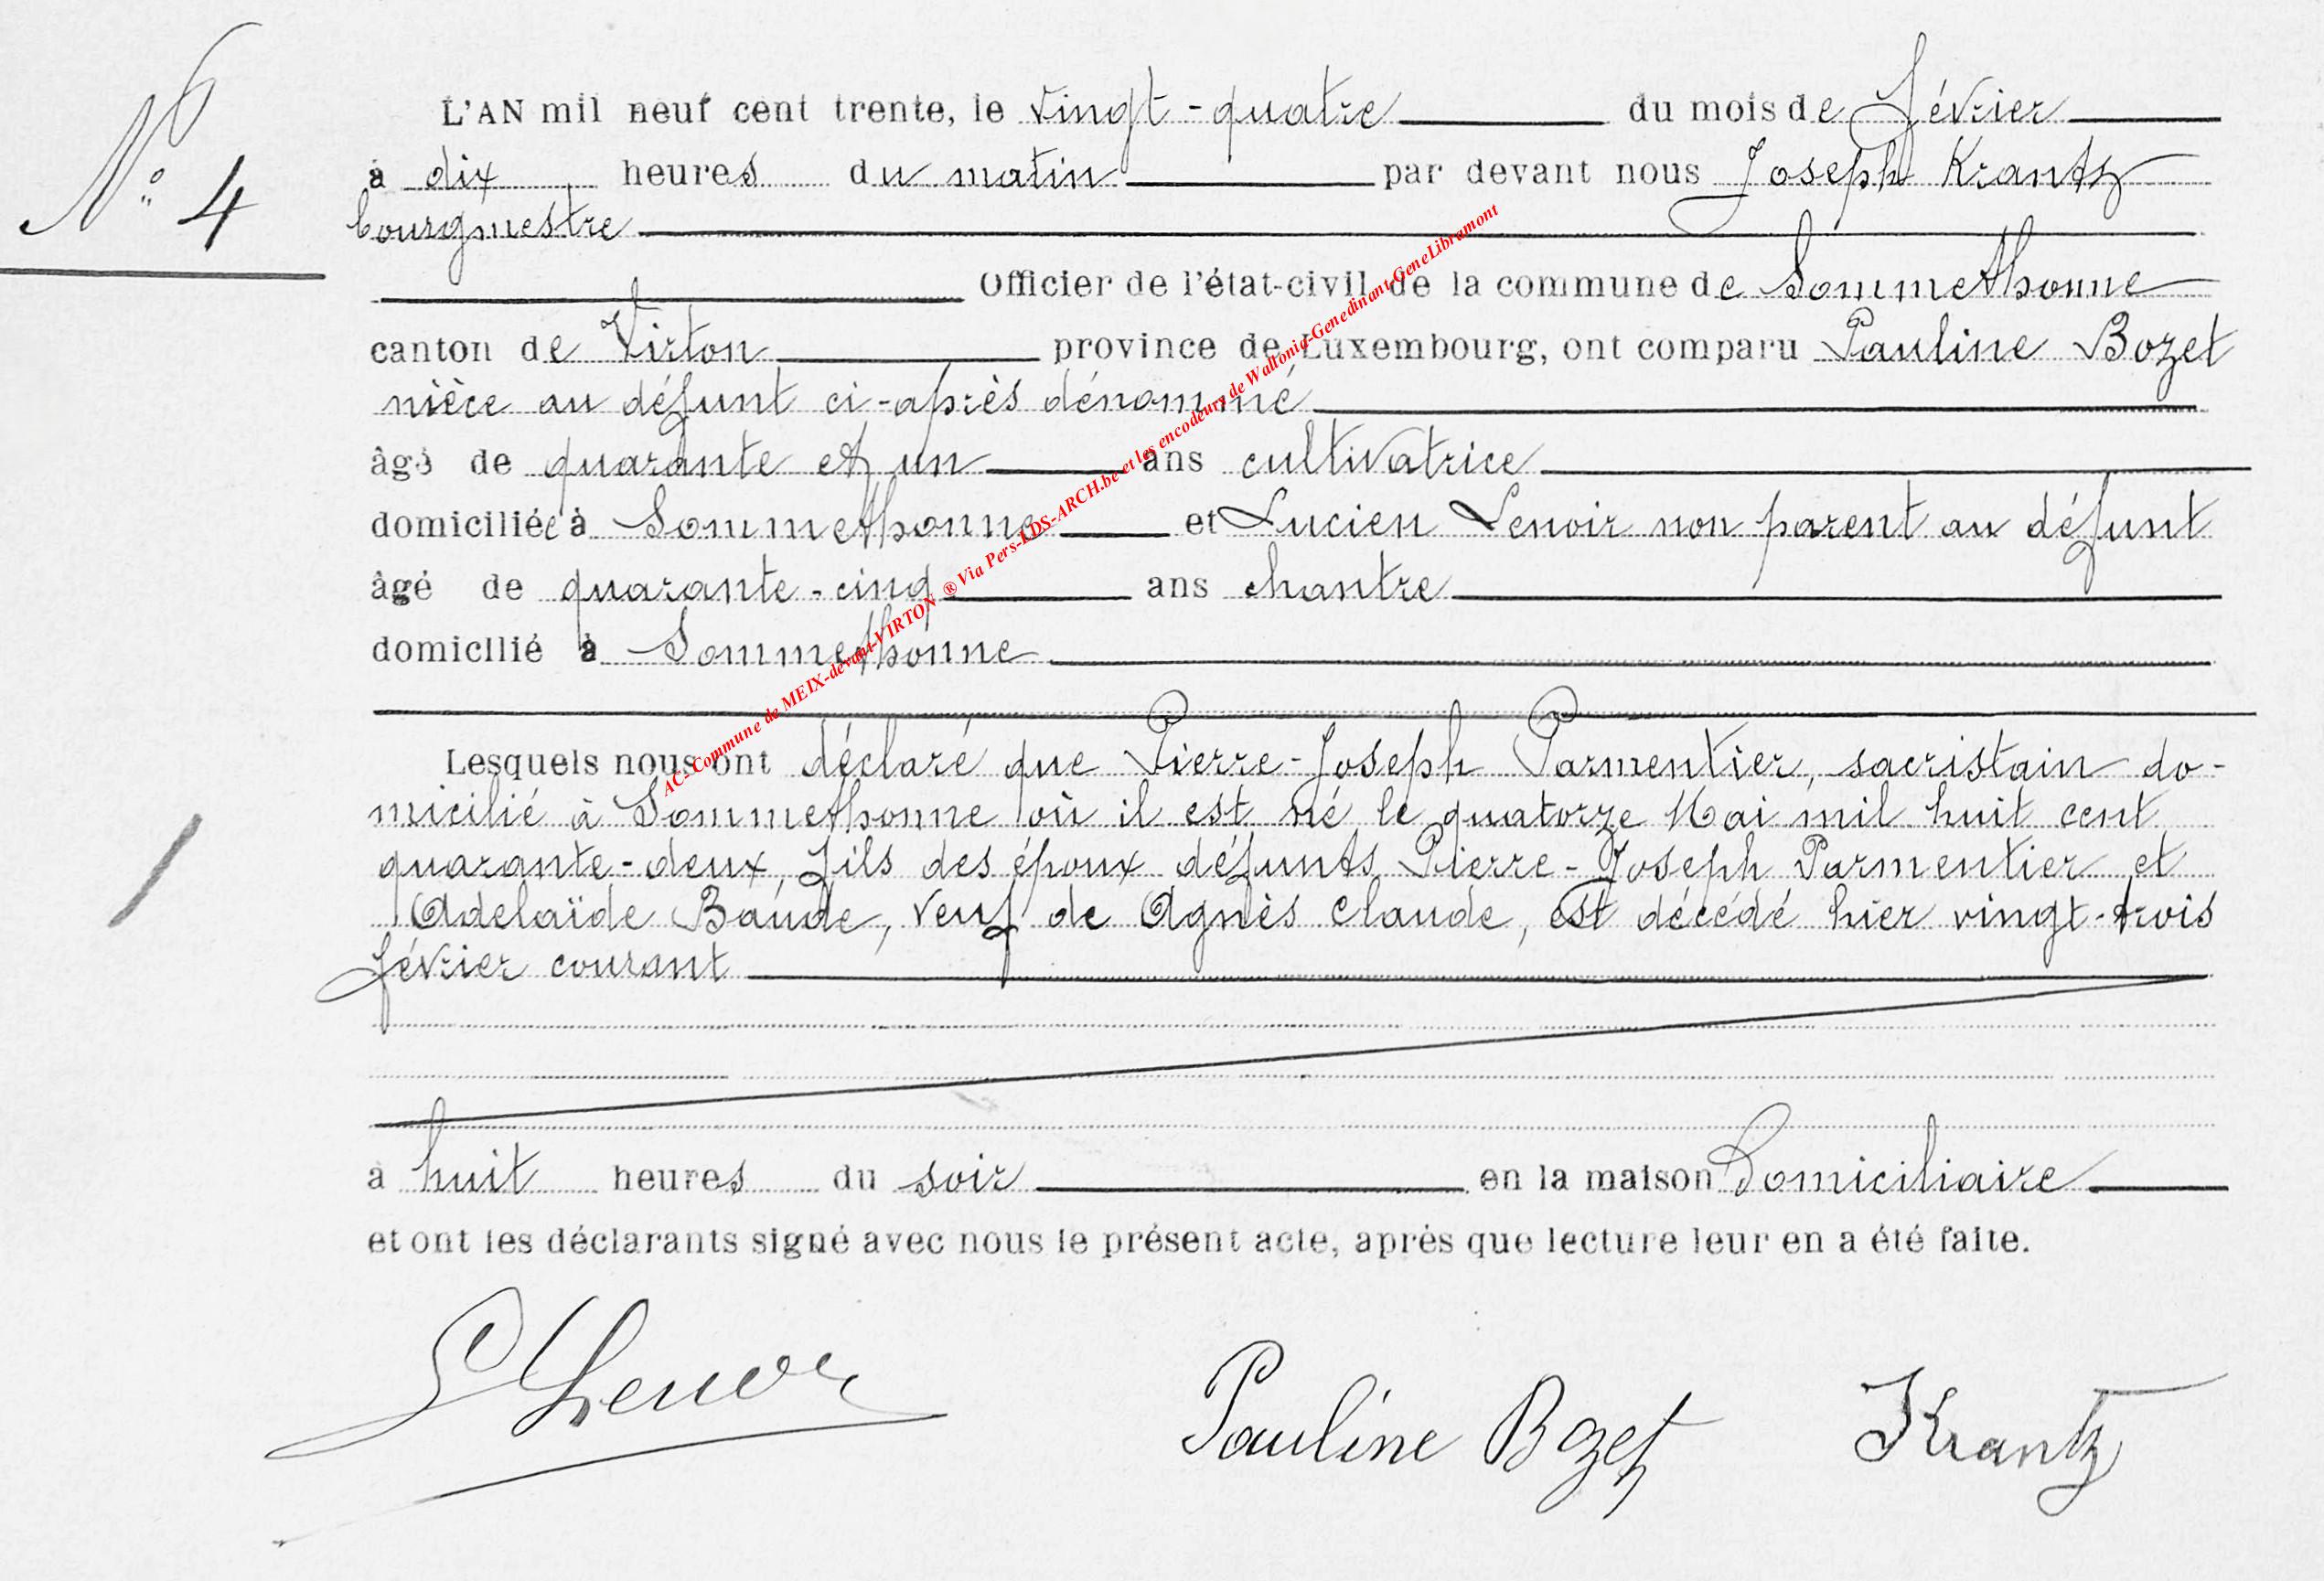 N° 4
L'AN mil neuf cent trente, le vingt-quatre du mois de février
à dix heures du matin par devant nous Joseph Krantz
bourgmestre
Officier de l'état-civil de la commune de Sommethonne
canton de Virton province de Luxembourg, ont comparu Pauline Bozet
nièce au défunt ci-après dénommé
âgé de quarante et un ans cultivatrice
domiciliée à Sommethonne et Lucien Lenoir non parent au défunt
âgé de quarante-cinq ans chantre
domicilié à Sommethonne
Lesquels nous ont déclaré que Pierre-Joseph Parmentier, sacristain do-
micilié à Sommethonne où il est né le quatorze Mai mil huit cent
quarante-deux, fils des époux défunts Pierre-Joseph Parmentier et
Adelaïde Baude, veuf de Agnès Claude, est décédé hier vingt-trois
février courant
à huit heures du soir en la maison Domiciliaire
et ont les déclarants signé avec nous le présent acte, après que lecture leur en a été faite.
Lenoir
Pauline Bozet
JKrantz
AC- Commune de MEIX-devant-VIRTON ® Via Pers-LDS-ARCH.be et les encodeurs de Wallonia-Genedinant-GeneLibramont